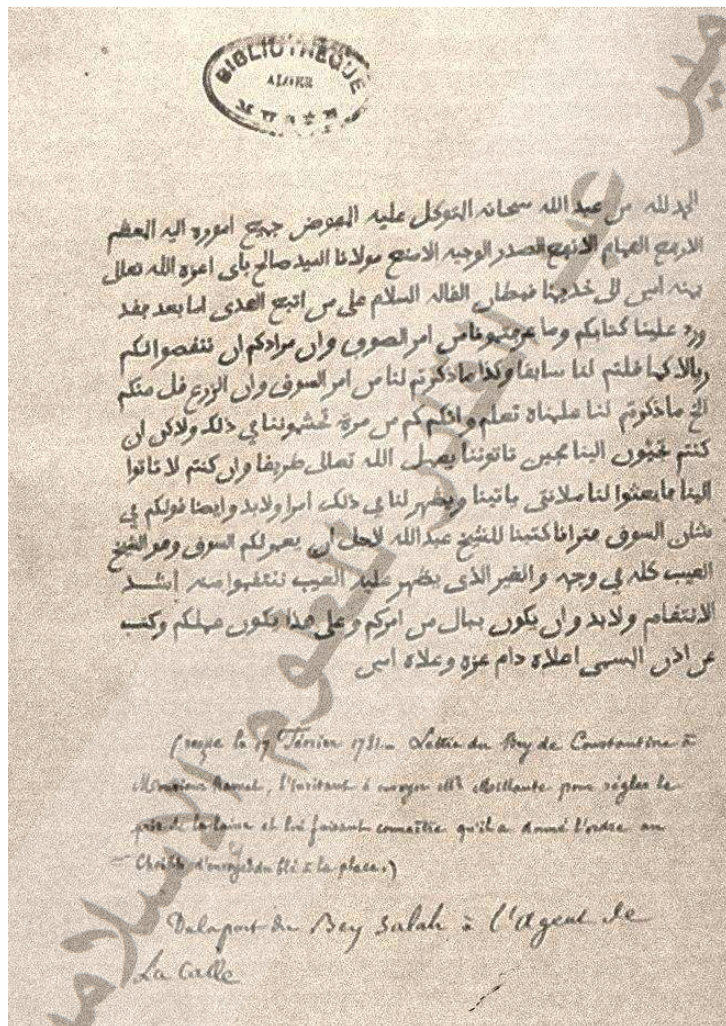 BIBLIOTHÈQUE
ALGER
الحمد لله من عبد الله سبحانه المتوكل عليه المفوض جميع اموره اليه المعظم
الارفع الهمام الانفع الصدر الوجيه الامنع مولانا السيد صالح باي اعزه الله تعالى
بمنه امين الى خديمنا قبطان القاله السلام على من اتبع الهدى اما بعد فقد
ورد علينا كتابكم وما عرفتمونا من امر الصوف وان مرادكم ان تنقصوا لكم
ريالا كما قلتم لنا سابقا وكذا ما ذكرتم لنا من امر السوق وان الزرع قل منكم
الخ ما ذكرتم لنا علمناه تعلم وانكم كم من مرة في ذلك ولاكن ان
كنتم الينا تاتوننا الله تعالى وان كنتم لا تاتوا
الينا فابعثوا لنا ياتينا ويظهر لنا في ذلك امرا ولابد وايضا قولكم في
شان السوق كتبنا للشيخ عبد الله لاجل ان يعمر لكم السوق وهو الشيخ
العيب كله في وجهه والغير الذي يظهر عليه العيب ننتقموا منه اشد
الانتقام ولابد وان من امركم وعلى هذا يكون عملكم وكتب
عن اذن المسمى اعلاه دام عزه وعلاه امين
(reçue le 17 Février 1781. Lettre du Bey de Constantine à
Monsieur Ramel, l'invitant à envoyer Mr pour régler le
prix de la laine et lui faisant connaître qu'il a donné l'ordre au
Cheikh d'envoyer du blé à la place.)
De la part du Bey Salah à l'Agent de
La Calle